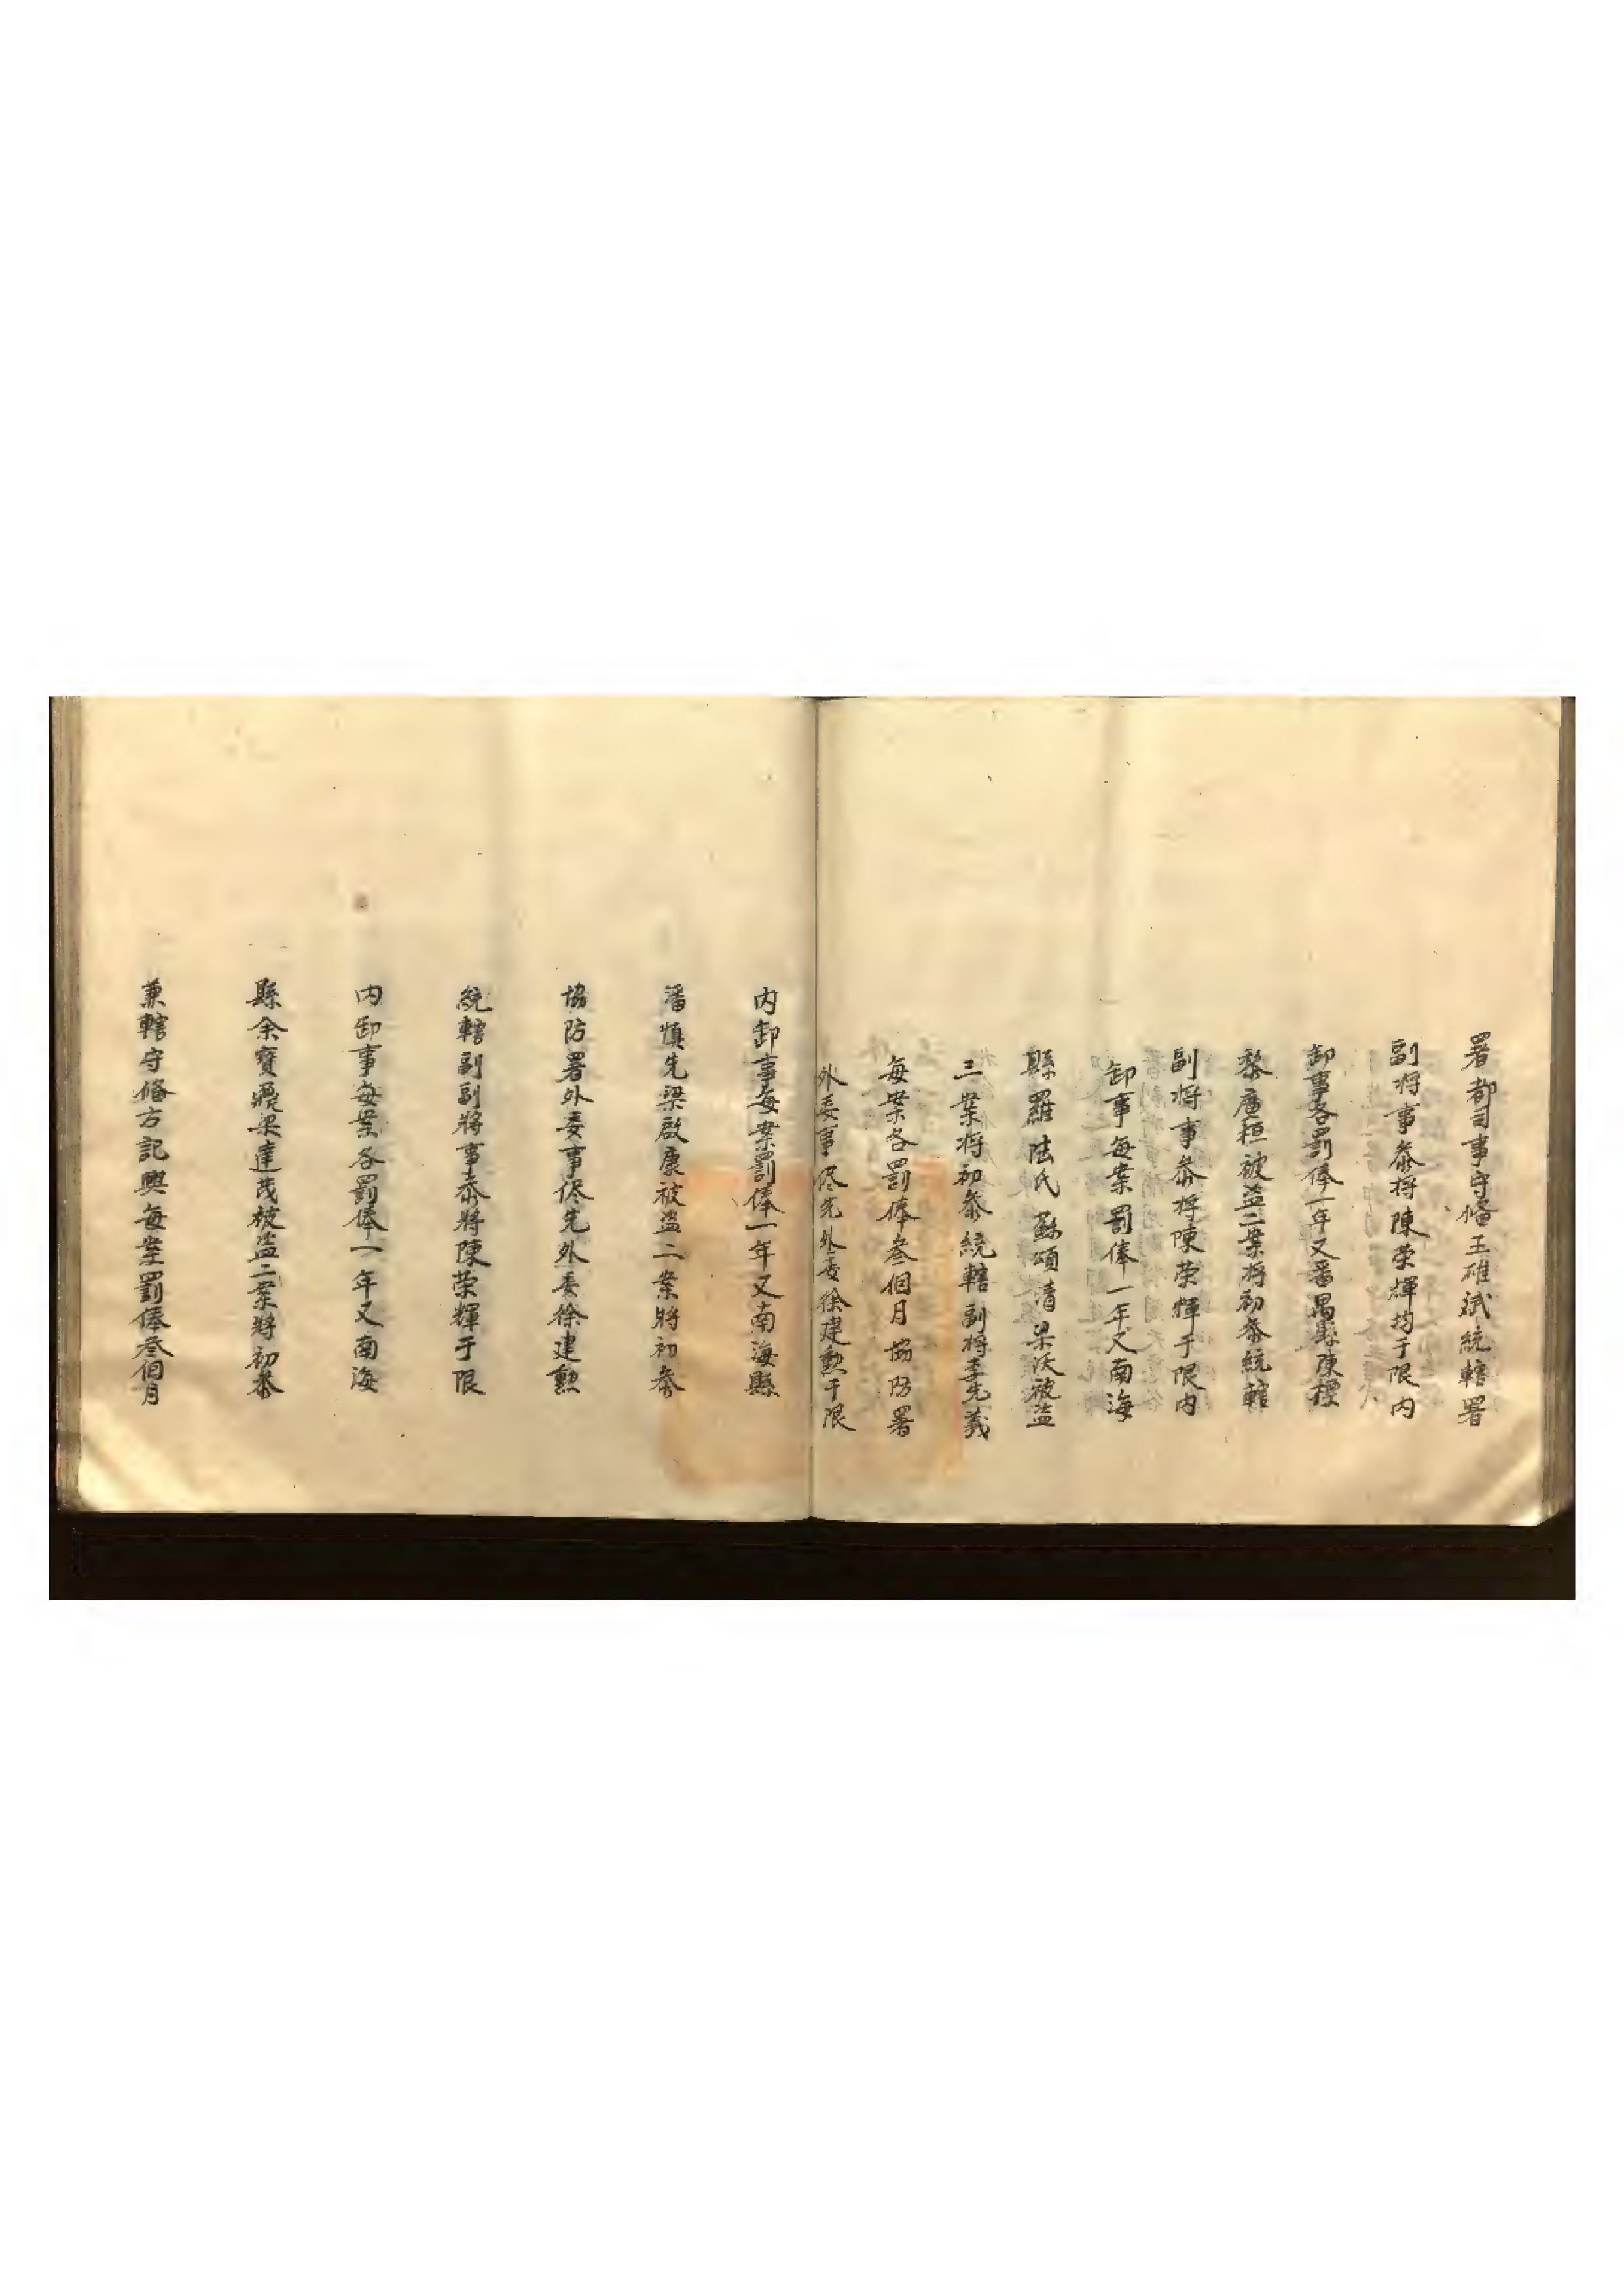 署都司事守備王碓斌統轄署
副将事叅将陳荣輝均于限内
卸事各罰俸一年又番禺縣陳標
黎廣桓被盗二案将初叅統轄
副将事叅将陳荣輝于限内
卸事每案罰俸一年又南海
縣羅陆氏蘇頌清梁沃被盗
三案将初叅統轄副将李先義
每案各罰俸叁個月協防署
外委事侭先外委徐建勲于限
内卸事每案罰俸一年又南海縣
潘慎先梁啟康被盗二案將初叅
協防署外委事侭先外委徐建勲
統轄副副將事叅將陳荣輝于限
内卸事每案各罰俸一年又南海
縣余寶梁達茂被盗二案將初叅
兼轄守俻方記興每案罰俸叁個月